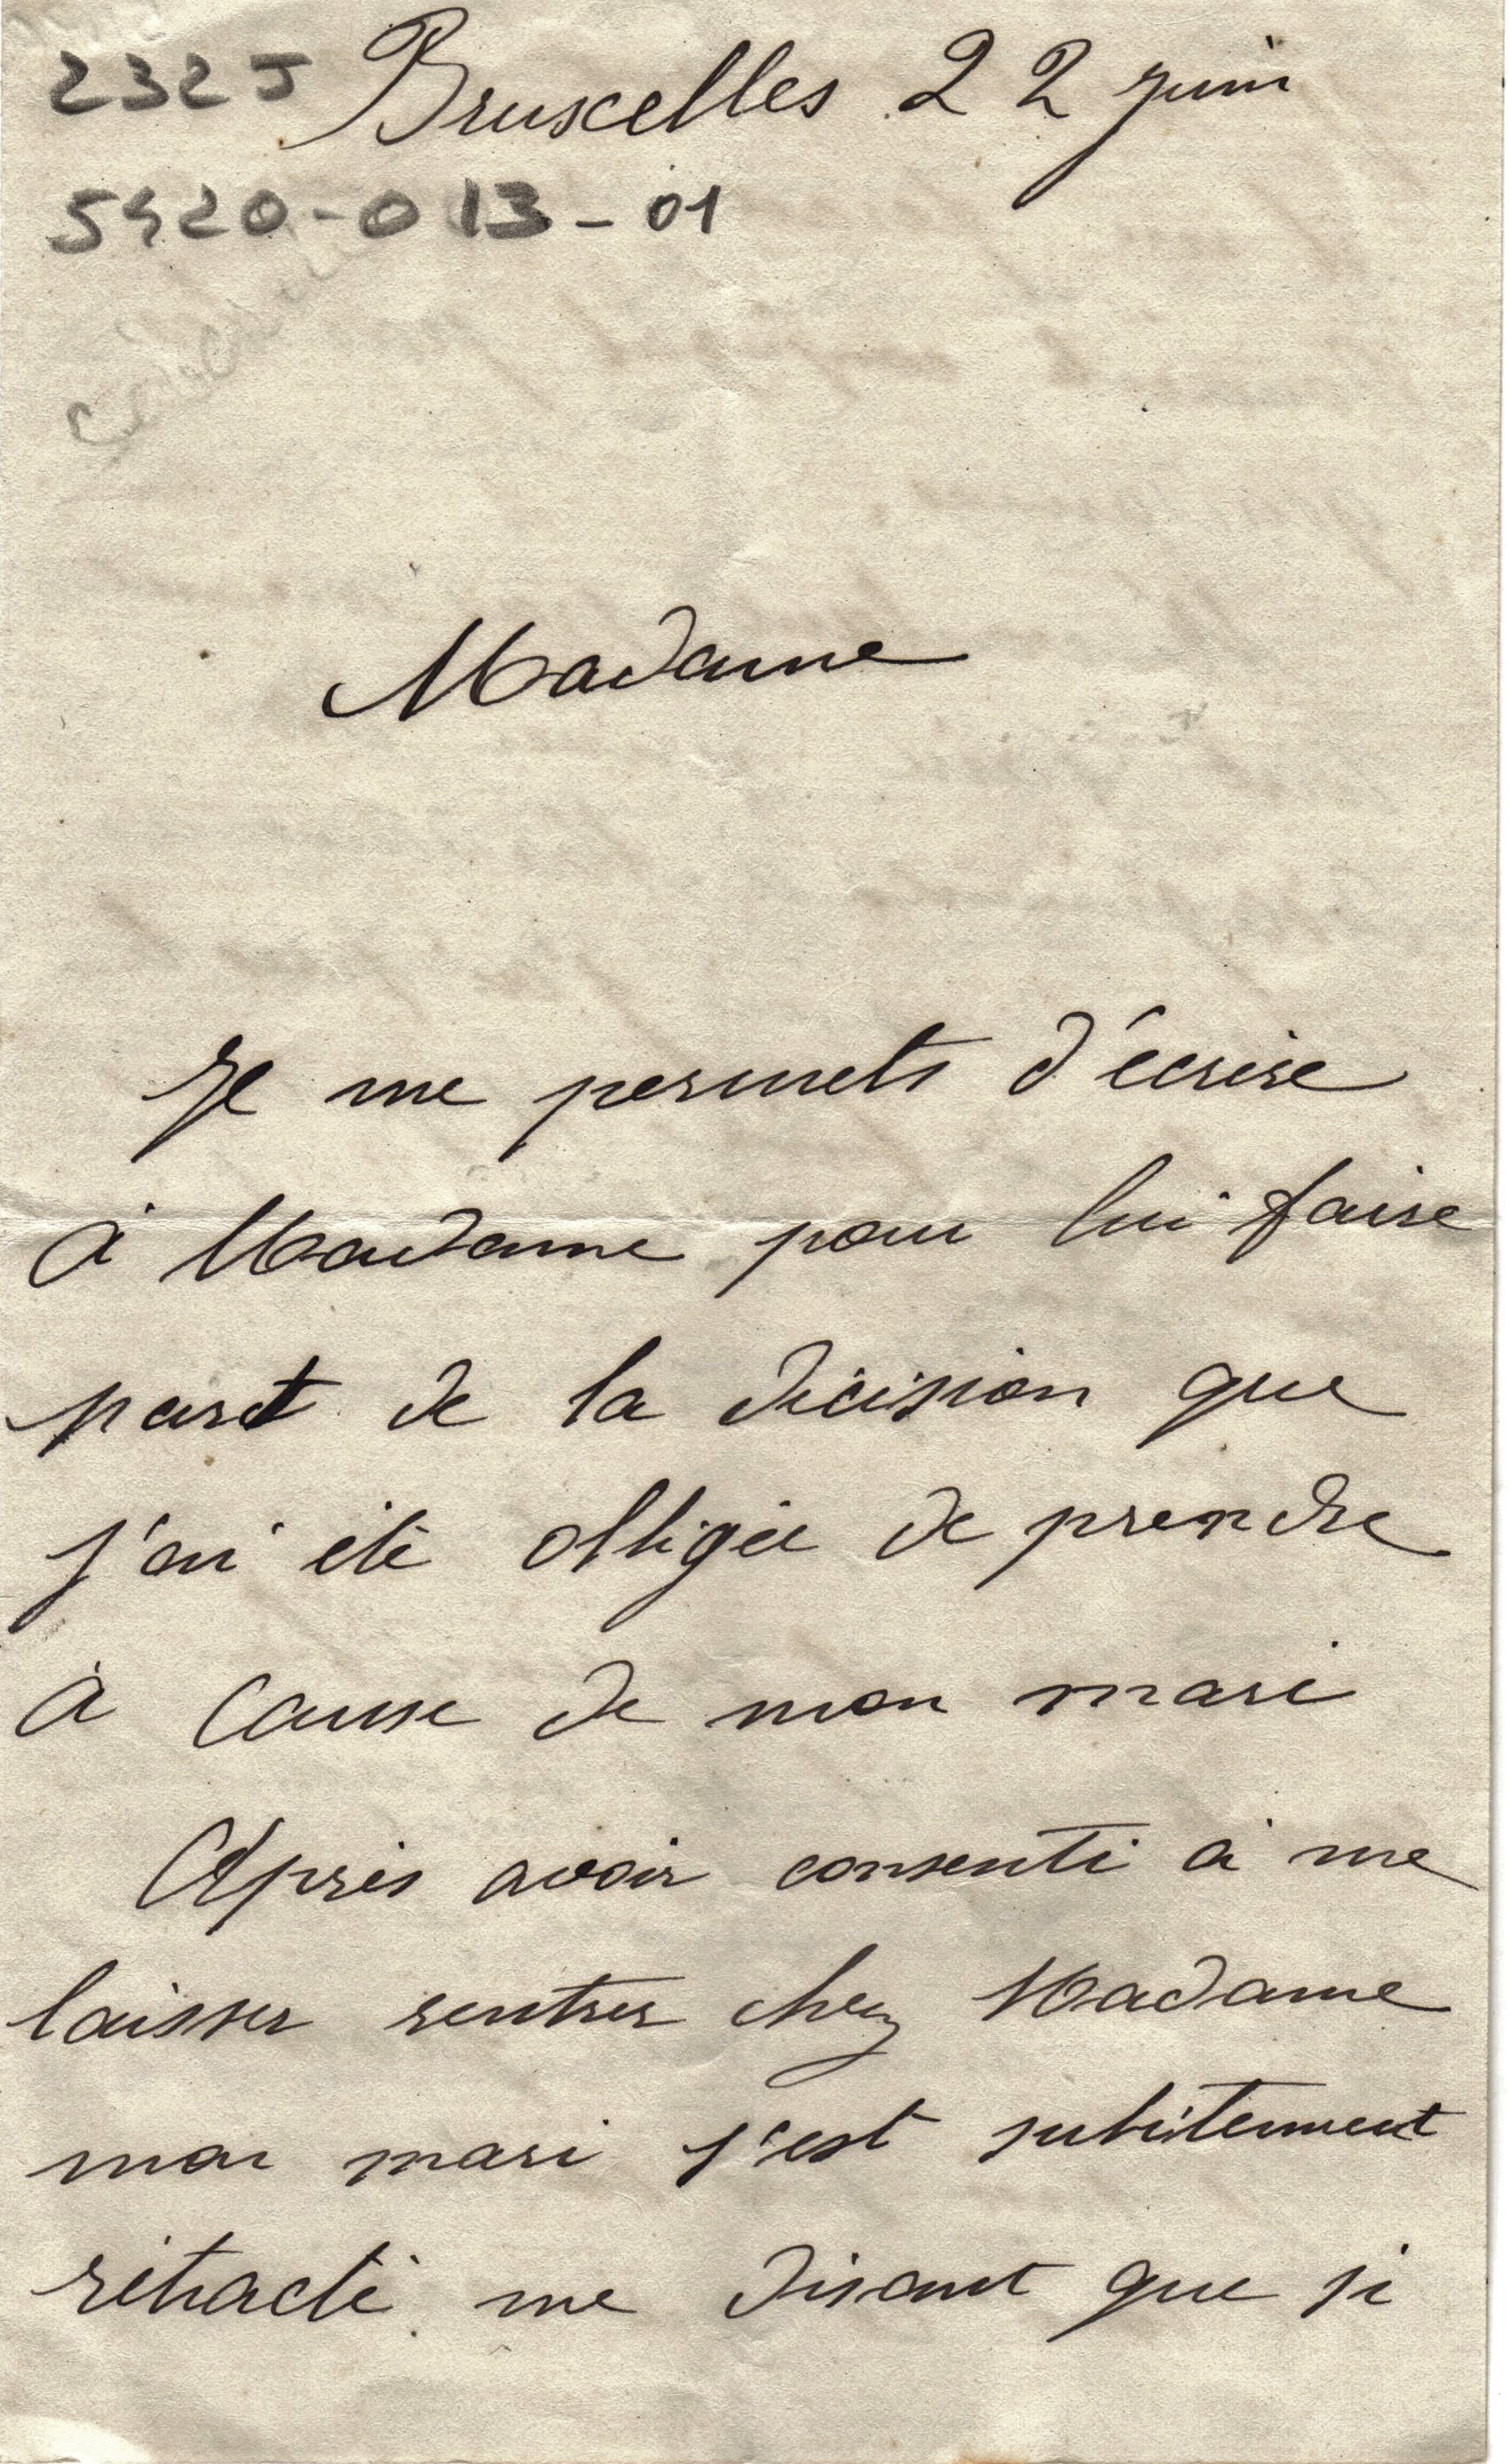 232 J Bruxelles 22 juin
5420-013-01
Madame
Je me permets d'écrire
à Madame pour lui faire
part de la décision que
j'ai été obligée de prendre
à cause de mon mari
Après avoir consenti à me
laisser rentrer chez Madame
mon mari s'est subitement
rétracté me disant que si